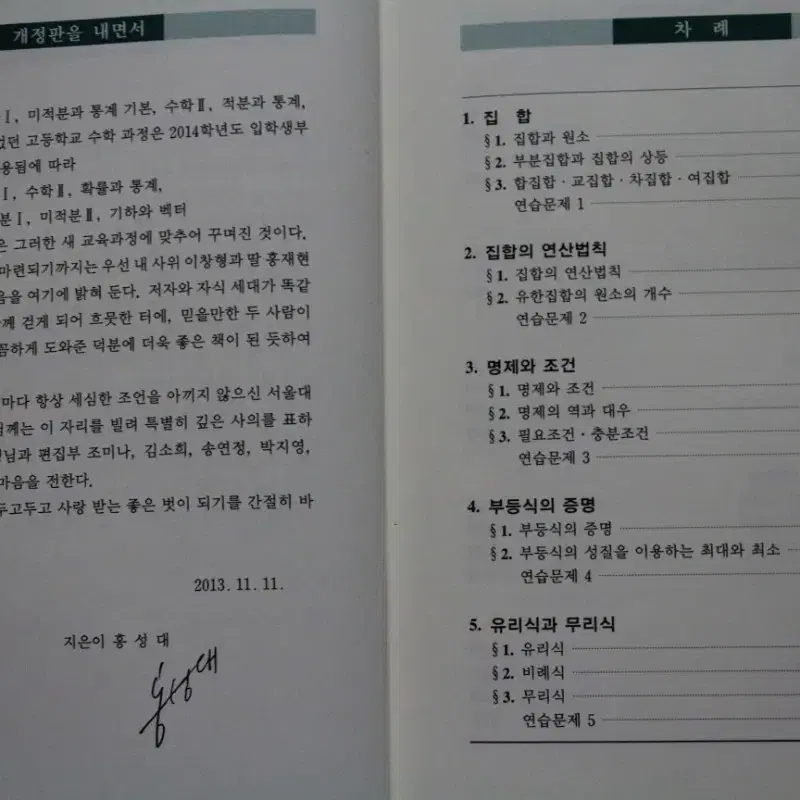 개정판을 내면서
Ⅰ, 미적분과 통계 기본, 수학Ⅱ, 적분과 통계,
었던 고등학교 수학 과정은 2014학년도 입학생부
용됨에 따라
Ⅰ, 수학Ⅱ, 확률과 통계,
분Ⅰ, 미적분Ⅱ, 기하와 벡터
은 그러한 새 교육과정에 맞추어 꾸며진 것이다.
마련되기까지는 우선 내 사위 이창형과 딸 홍재현
음을 여기에 밝혀 둔다. 저자와 자식 세대가 똑같
께 걷게 되어 흐뭇한 터에, 믿을만한 두 사람이
꼼하게 도와준 덕분에 더욱 좋은 책이 된 듯하여
마다 항상 세심한 조언을 아끼지 않으신 서울대
께는 이 자리를 빌려 특별히 깊은 사의를 표하
님과 편집부 조미나, 김소희, 송연정, 박지영,
마음을 전한다.
두고두고 사랑 받는 좋은 벗이 되기를 간절히 바
2013. 11. 11.
지은이 홍 성 대
홍성대
차 례
1. 집 합
§1. 집합과 원소
§2. 부분집합과 집합의 상등
§3. 합집합·교집합·차집합·여집합
연습문제 1
2. 집합의 연산법칙
§1. 집합의 연산법칙
§2. 유한집합의 원소의 개수
연습문제 2
3. 명제와 조건
§1. 명제와 조건
§2. 명제의 역과 대우
§3. 필요조건·충분조건
연습문제 3
4. 부등식의 증명
§1. 부등식의 증명
§2. 부등식의 성질을 이용하는 최대와 최소
연습문제 4
5. 유리식과 무리식
§1. 유리식
§2. 비례식
§3. 무리식
연습문제 5